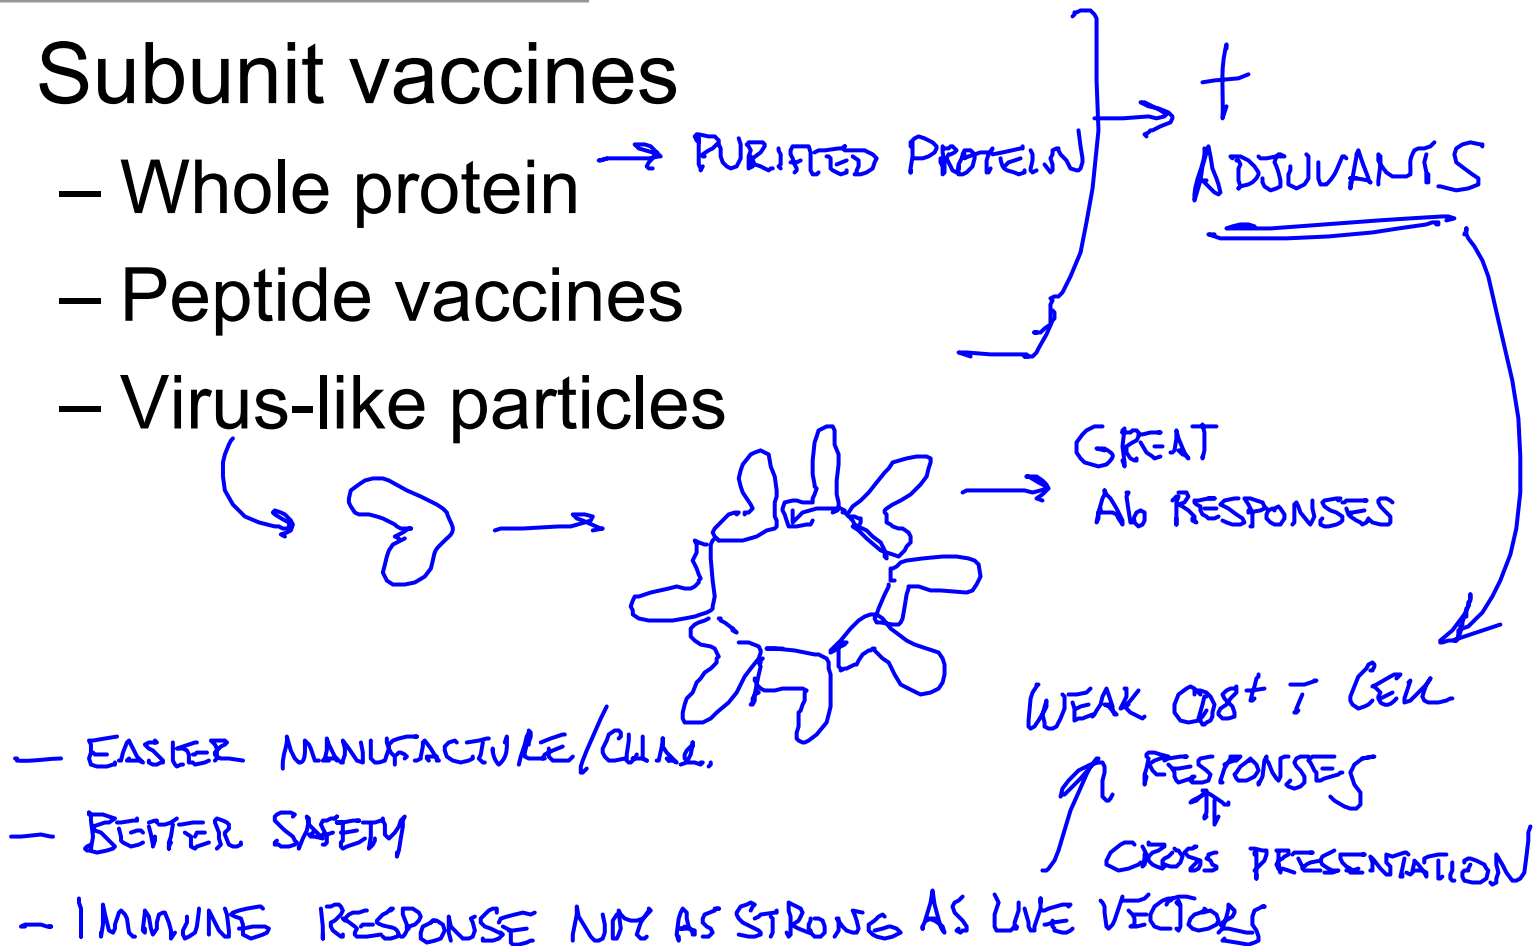 Subunit vaccines
– Whole protein → PURIFIED PROTEIN → +
ADJUVANTS
– Peptide vaccines
– Virus-like particles
GREAT
Ab RESPONSES
WEAK CD8+ T CELL
RESPONSES
CROSS PRESENTATION
— EASIER MANUFACTURE/CHAR.
— BETTER SAFETY
— IMMUNE RESPONSE NOT AS STRONG AS LIVE VECTORS